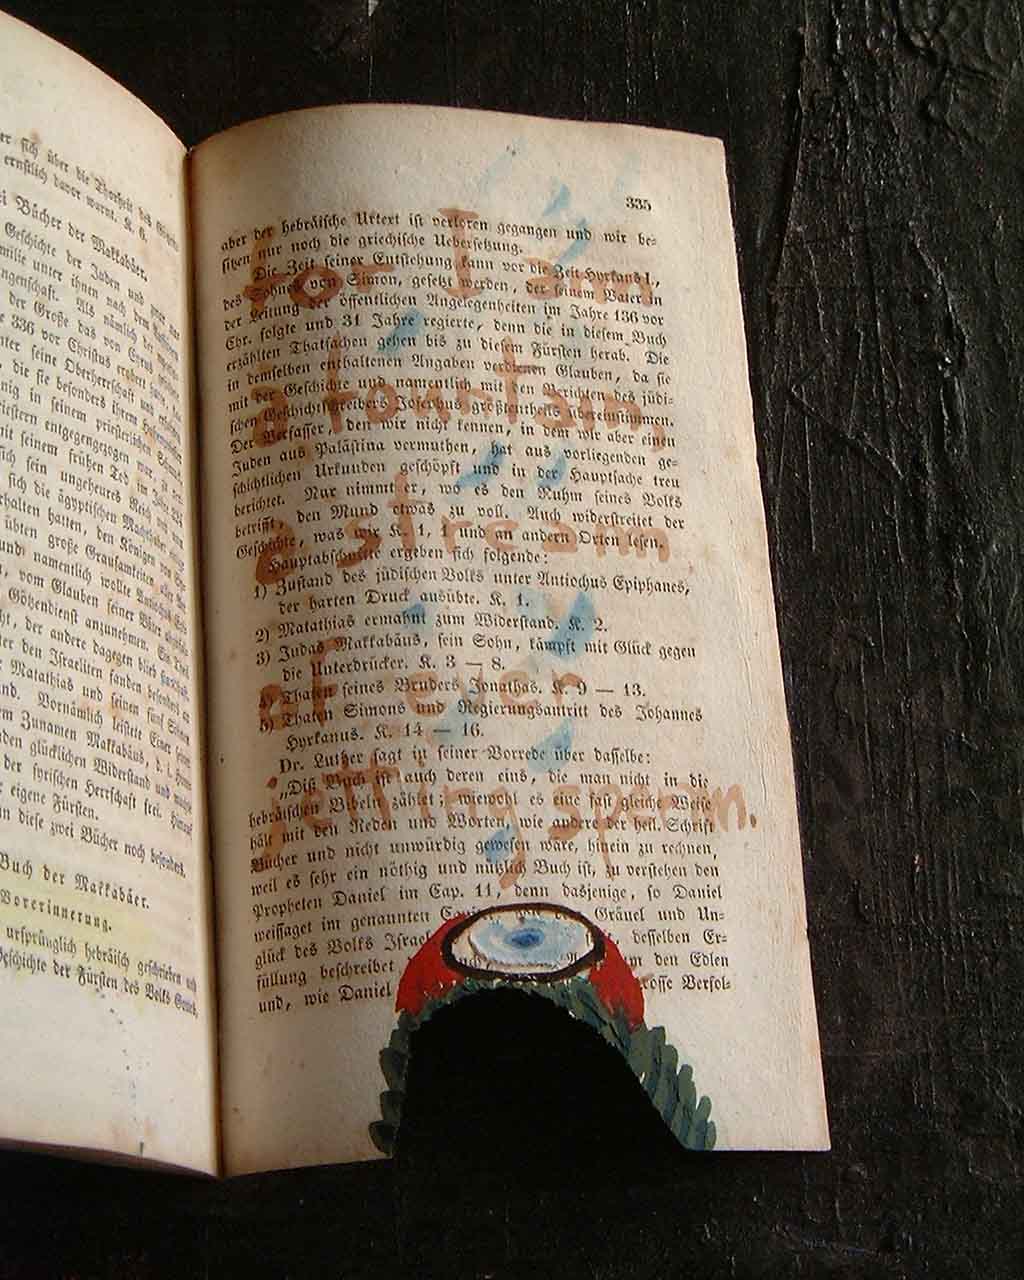 er sich über die Thorheit des
ernstlich davor warnt. K. 6.
Bücher der Makkabäer.
Geschichte der Juden und
unter ihnen nach dem
Als nämlich der
der Große das von Cyrus
336 vor Christus erobert
seine Oberherrschaft und
die sie besonders ihrem
in seinem priesterlichen
entgegengezogen war, in
mit seinem frühen Tod im Jahre
sich sein ungeheures Reich
sich die ägyptischen
erhalten hatten, den Königen von
übten große Grausamkeiten
und namentlich wollte
vom Glauben seiner Väter
Götzendienst anzunehmen. Ein Theil
der andere dagegen blieb
den Israeliten fanden besonders
Matathias und seinen fünf Söhnen
Vornämlich leistete Einer
Zunamen Makkabäus, d. i.
den glücklichen Widerstand und
der syrischen Herrschaft frei.
eigene Fürsten.
diese zwei Bücher noch besonders.
Buch der Makkabäer.
Vorerinnerung.
ursprünglich hebräisch geschrieben
Geschichte der Fürsten des Volks
335
aber der hebräische Urtext ist verloren gegangen und wir be-
sitzen nur noch die griechische Uebersetzung.
Die Zeit seiner Entstehung kann vor die Zeit Hyrkans I.,
des Sohnes von Simon, gesetzt werden, der seinem Vater in
der Leitung der öffentlichen Angelegenheiten im Jahre 136 vor
Chr. folgte und 31 Jahre regierte, denn die in diesem Buch
erzählten Thatsachen gehen bis zu diesem Fürsten herab. Die
in demselben enthaltenen Angaben verdienen Glauben, da sie
mit der Geschichte und namentlich mit den Berichten des jüdi-
schen Geschichtschreibers Josephus größtentheils übereinstimmen.
Der Verfasser, den wir nicht kennen, in dem wir aber einen
Juden aus Palästina vermuthen, hat aus vorliegenden ge-
schichtlichen Urkunden geschöpft und in der Hauptsache treu
berichtet. Nur nimmt er, wo es den Ruhm seines Volks
betrifft, den Mund etwas zu voll. Auch widerstreitet der
Geschichte, was wir K. 1, 1 und an andern Orten lesen.
Hauptabschnitte ergeben sich folgende:
1) Zustand des jüdischen Volks unter Antiochus Epiphanes,
der harten Druck ausübte. K. 1.
2) Matathias ermahnt zum Widerstand. K. 2.
3) Judas Makkabäus, sein Sohn, kämpft mit Glück gegen
die Unterdrücker. K. 3 — 8.
4) Thaten seines Bruders Jonathas. K. 9 — 13.
5) Thaten Simons und Regierungsantritt des Johannes
Hyrkanus. K. 14 — 16.
Dr. Luther sagt in seiner Vorrede über dasselbe:
„Diß Buch ist auch deren eins, die man nicht in die
hebräischen Bibeln zählet; wiewohl es eine fast gleiche Weise
hält mit den Reden und Worten, wie andere der heil. Schrift
Bücher und nicht unwürdig gewesen wäre, hinein zu rechnen,
weil es sehr ein nöthig und nützlich Buch ist, zu verstehen den
Propheten Daniel im Cap. 11, denn dasjenige, so Daniel
weissaget im genannten von Gräuel und Un-
glück des Volks Israel desselben Er-
füllung beschreibet den Edlen
und, wie Daniel große Verfol-
for I am
a fountain,
a stream
of ever
jetting sperm.